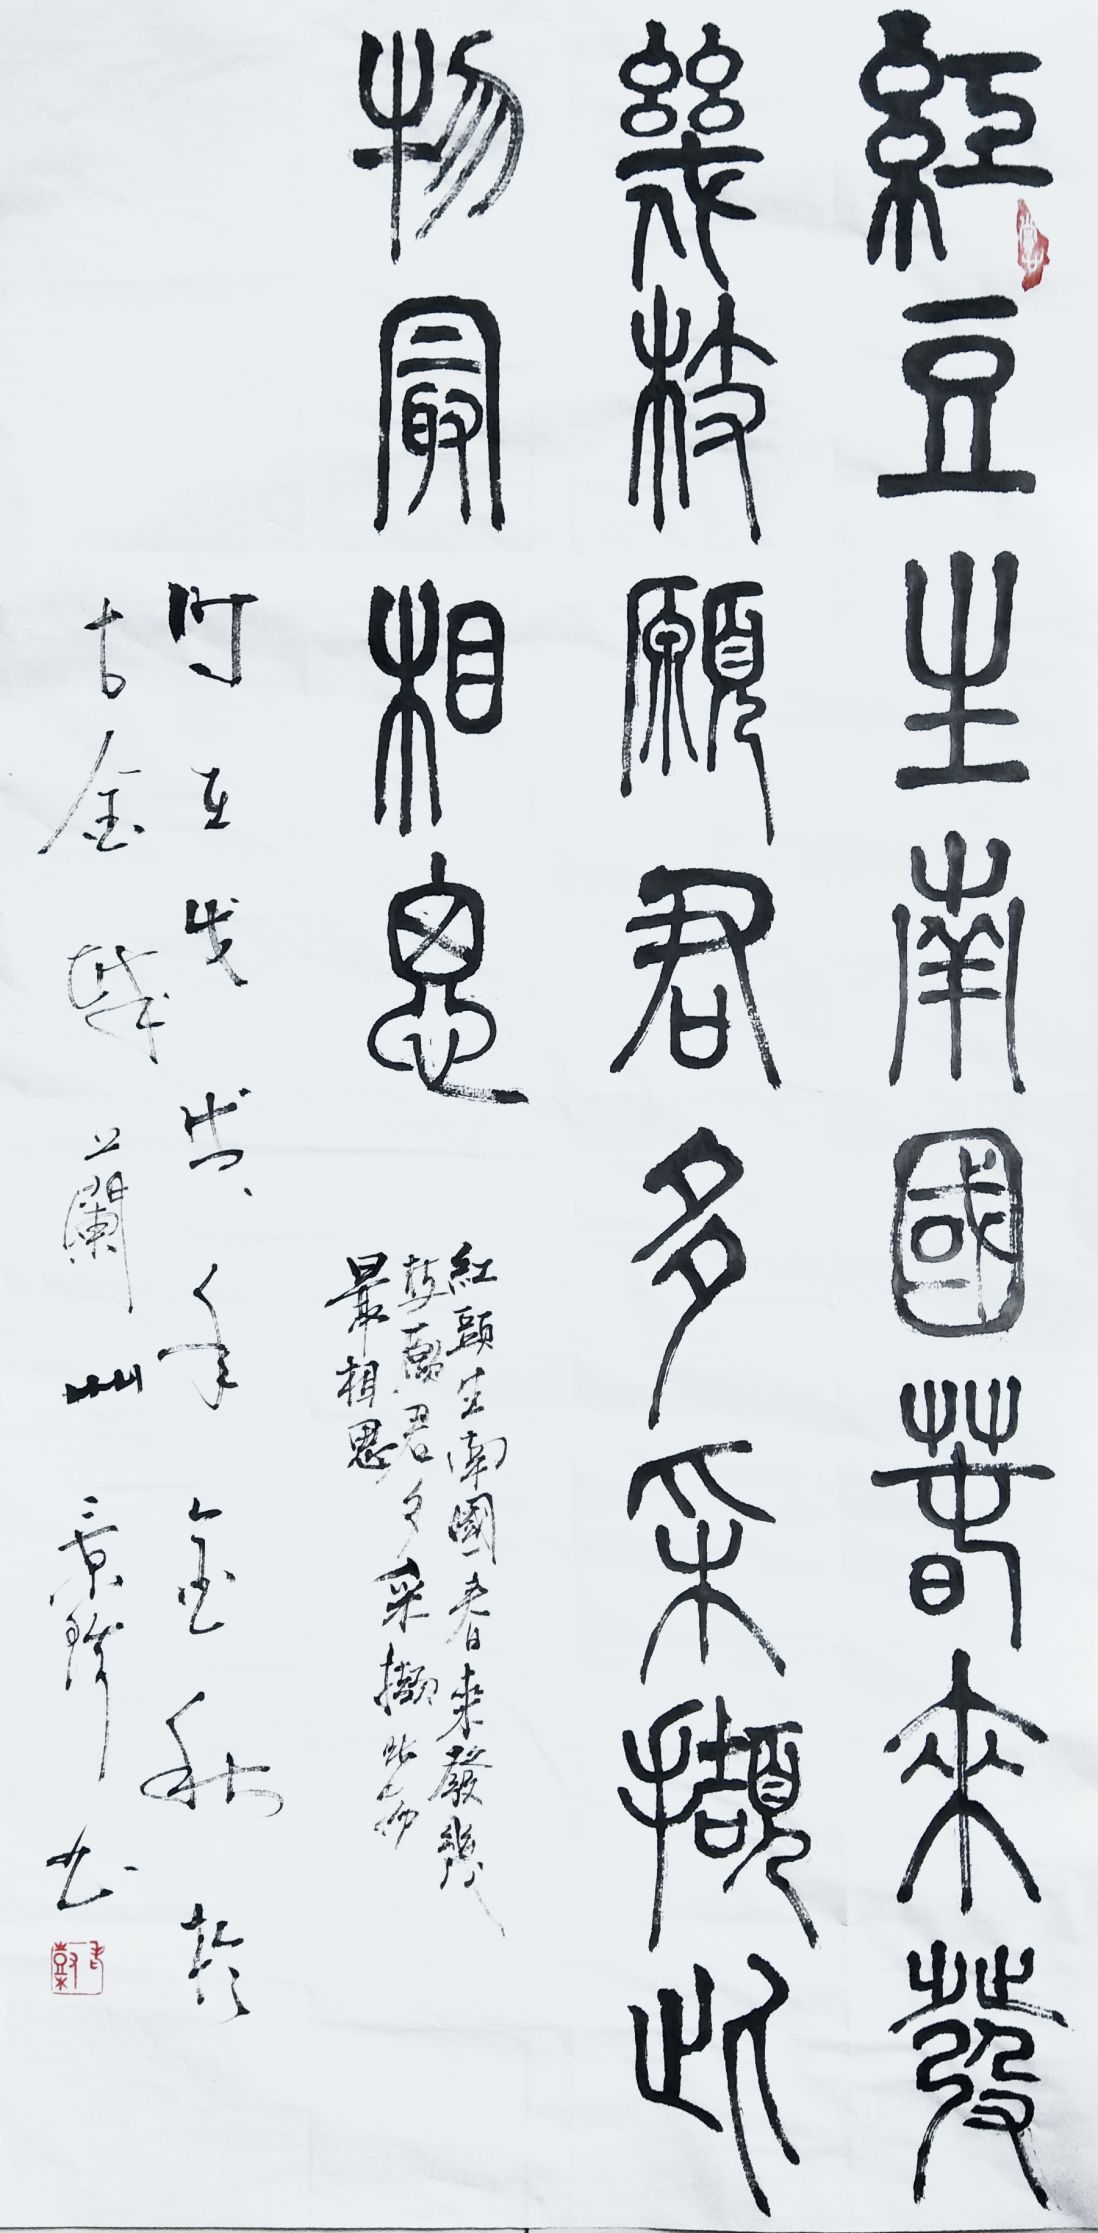 紅豆生南國春來發
幾枝願君多采擷此
物最相思
紅頭生南國春來發幾
枝願君多采擷此物
最相思
时在戊戌年金秋於
古金城蘭州景瑋书